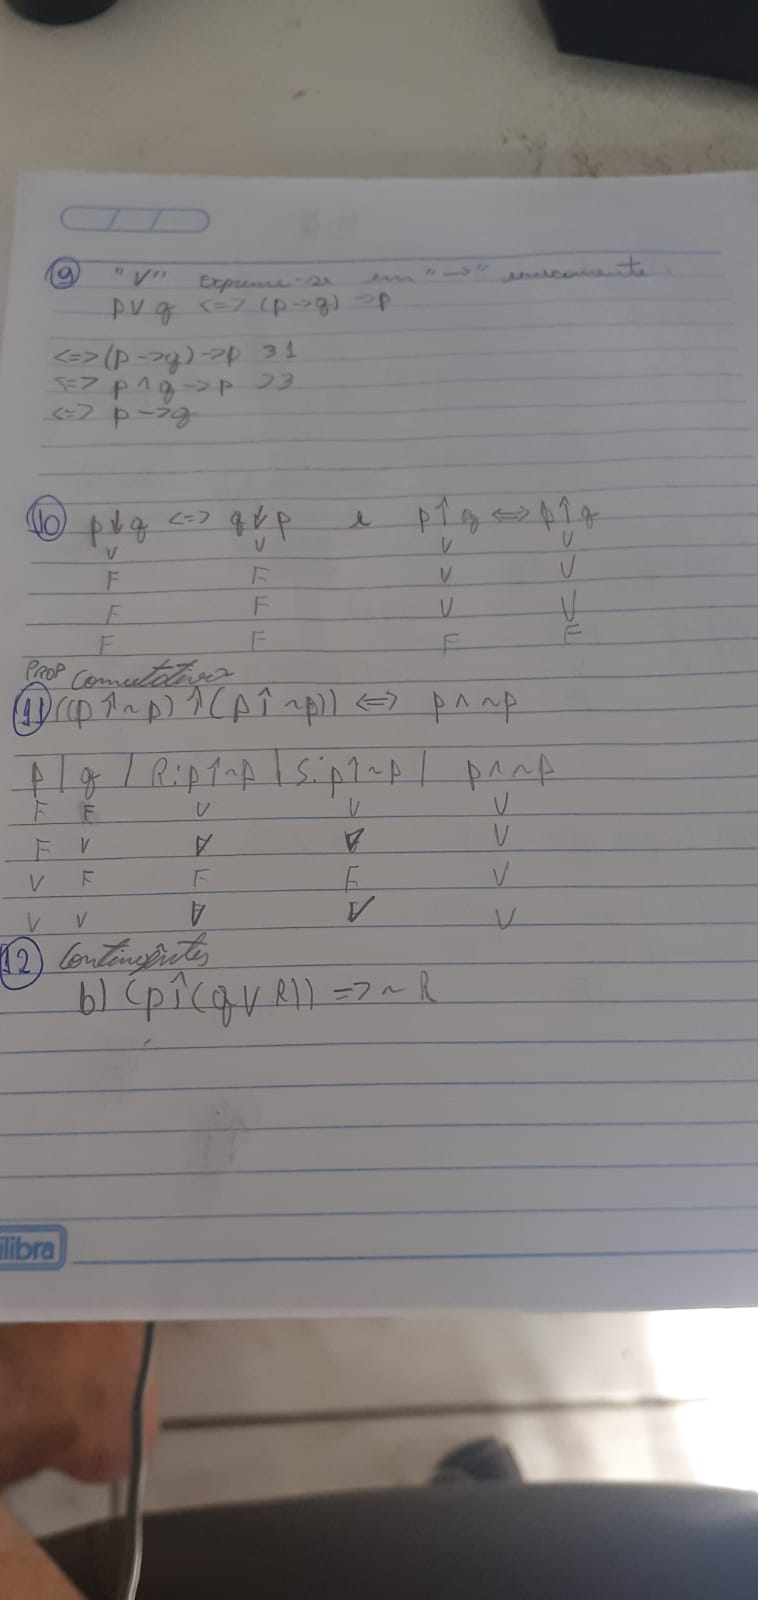 9 "V" Exprime-se em "->" unicamente.
p v q <=> (p->q)->p
<=> (p->q)->p 31
<=> p ^ q->p 23
<=> p->q
10 p↓q <=> q↓p e p↑q <=> p↑q
V V V V
F F V V
F F V V
F F F F
PROP Comutativa
11 ((p↑~p)↑(p↑~p)) <=> p ^ ~p
p | q | R:p↑~p | S:p↑~p | p ^ ~p
F F V V V
F V V V V
V F F F V
V V V V V
12 Contingêntes
b) (p↑(q v R)) => ~R
ilibra